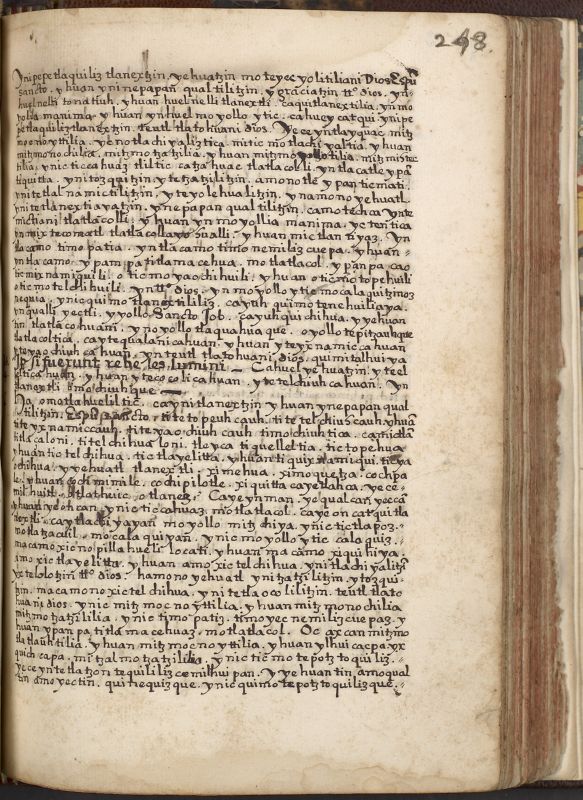 248.
ynipepetlaquiliz tlanextzin. yehuatzin moteyecyolitiliani Dios Espũ
sancto. yhuan yninepapan qualtilitzin. y graciatzin ttº dios. yn
huelnelli tonatiuh, yhuan huelnelli tlanextli. caquitlanextilia. ynmo
yollia manima. yhuan ynhuel moyollo ytic. cahuey catqui. ynipe
petlaquiliztlanextzin. teutl tlatohuani dios. Yece yntlayquac mitz
monoyttilia. yenotlachiyaliztica mitic motlachiyaltia. yhuan
mitzmonochilia. mitzmotzatzilia. yhuan mitzmoyollotilia.
tilia. ynicticcahuaz tliltic catzahuac tlatlacolli. yntlacatle ypã
tiquitta. ynitozquitzin. ytetzatzilitzin. amonotle ypan ticmati.
ynitetlalnamictilitzin. yteyolehualitzin. ynamono yehuatl
ynitetlanextiayatzin. ynepapan qualtilitzin. camo techca
mictiani tlatlacolli. yhuan ynmoyollia manima. yctentica
ynmixtecomatl tlatlacolla. yhuan mictlan tiyaz. yn
tlacamo timopatia. yntlacamo timonemilizcuepa. yhuan
yntlacamo. ypampa titlamacehua. motlatlacol. ypanpa cao
ticmixnamiquili. oticmoyaochihuili. yhuan oticmotopehuili
oticmotelchihuili. ynttº dios. ynmoyollo ytic mocalaquitznos
nequia. ynic quimotlanextililiz. cayuh quimotenehuiliaya.
ynqualli yectli. yyollo Sancto Job. cayuh quichihua. yyehuan
tin. tlatlacohuani. ynoyollo tlaquahuaque. oyollotepitzauhque
tlatlacoltica. caytequalanicahuan. yhuan yteyxnamiccahuan
yteyaochiuhcahuan. ynteutl tlatohuani dios. quimitalhuiya
Ipsi fuerunt rebelles lumini. Cahuel yehuatzin. yteel
yhuan ytecocolicahuan. ytetelchiuhcahuan. yn
tlanextli omochiuhque.
omotlahueliltic. caynitlanextzin yhuan ynepapan qual
tilitzin. Espũ Sancto. titetopeuhcauh. titetelchiuhcauh. yhuã
titeyxnamiccauh. titeyaochiuhcauh timochiuhtica.
titlacaloni. titelchihualoni. tleyca tiquelleltia. tictopehua
yhuan tictelchihua. tictlayelitta. yhuan tiquixnamiqui.
ochihua. yyehuatl tlanextli. ximehua. ximoquetza. cochpa
yhuan cochmimile. cochipilotle. xiquitta cayetlahca. yece
milhuitl. otlathuic otlanez. Caye ynman. yequalcan yeccã
yhuan yeohcan. ynic ticcahuaz motlatlacol. cayeoncatqui tla
nextli. caytlachiyayan moyollo mitzchiya. ynictictlapoz.
motlatzacuil. mocalaquiyan. ynicmoyollo ytic calaquiz.
macamo xicnopillahueli locati. yhuan macamo xiquihiya.
amo xictlayelitta. yhuan amo xictelchihua. ynitlachiyalitz
yxtelolotzin ttº dios. hamono yehuatl ynitzatzilitzin. ytozqui
tzin. macamono xictelchihua. ynitetlaocolilitzin. teutl tlato
huani dios. ynic mitzmocnoyttilia. yhuan mitzmonochilia
mitzmotzatzililia. ynictimopatiz. timoyecnemilizcuepaz. y
huan ypanpa titlamacehuaz. motlatlacol. Oc axcan mitzmo
tlatlauhtilia. yhuan mitzmocnoyttilia. yhuan ylhuicacpa yx
quichcapa. mitzhualmotzatzililia. ynicticmotepotztoquiliz.
yece yntetlatzontequililizcemilhuipan. Yyehuantin amoqual
tin amo yectin. quinequizque. ynic quimotepotztoquilizque.